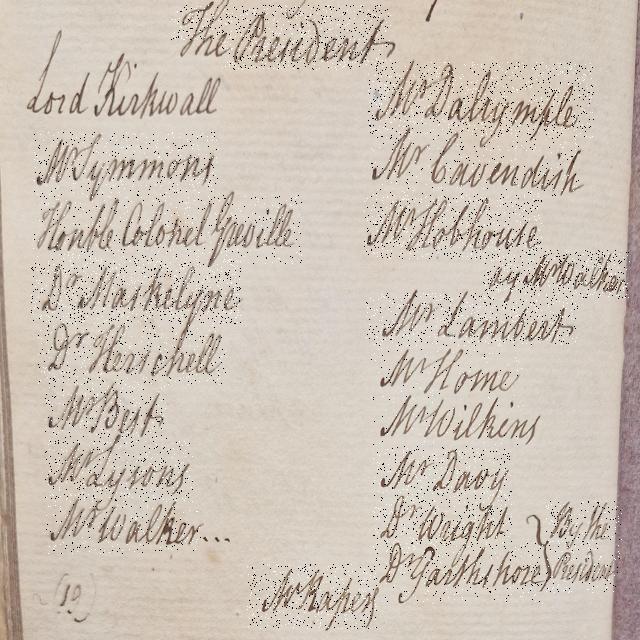 The President
Lord Kirkwall
Mr Symmons
Honble Colonel Greville
Dr Maskelyne
Dr Herschell
Mr Best
Mr Lysons
Mr Walker...
Mr Dalrymple
Mr Cavendish
Mr Hobhouse
by Mr Walker
Mr Lambert
Mr Home
Mr Wilkins
Mr Davy
Dr Wright } By the
Dr Garthshore } President
Mr Raper
(19)